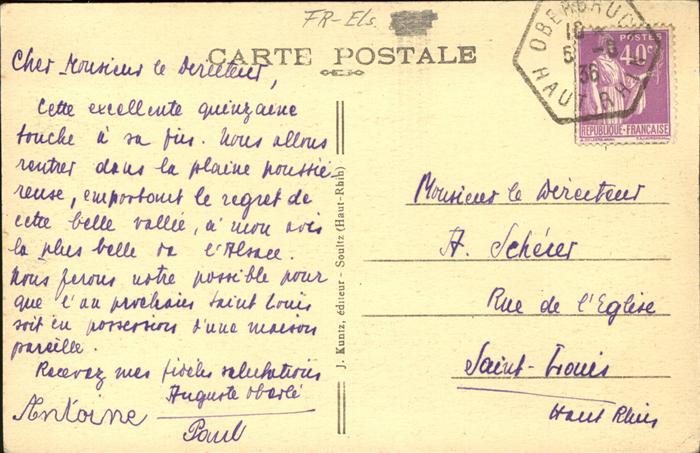 FR-Els.
CARTE POSTALE
OBERBRUCK
18
5 -6
36
HAUT RHIN
POSTES
40c
REPUBLIQUE-FRANÇAISE
Cher Monsieur le Directeur,
Cette excellente quinzaine
touche à sa fin. Nous allons
rentrer dans la plaine poussié-
reuse, emportant le regret de
cette belle vallée, à mon avis
la plus belle de l'Alsace.
Nous ferons notre possible pour
que l'an prochain Saint Louis
soit en possession d'une maison
pareille.
Recevez mes fidèles salutations
Auguste Oberlé
Antoine
Paul
J. Kuntz, éditeur - Soultz (Haut-Rhib)
Monsieur le Directeur
A. Schérer
Rue de l'Eglise
Saint-Louis
Haut Rhin